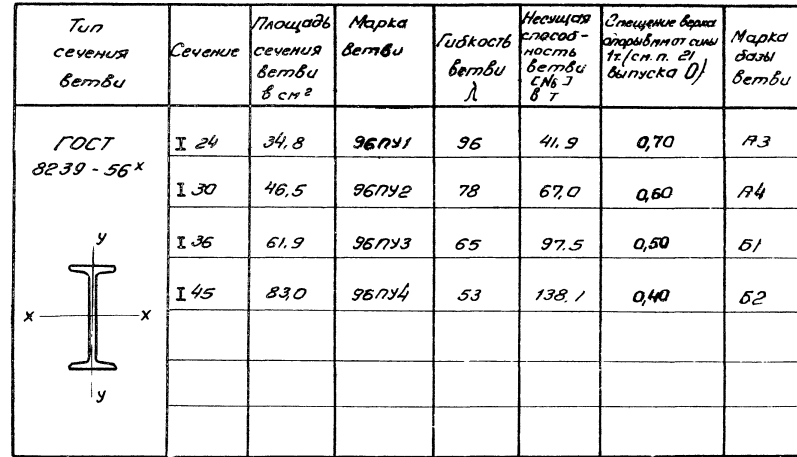 Тип
сечения
ветви
Сечение
Площадь
сечения
ветви
в см²
Марка
ветви
Гибкость
ветви
λ
Несущая
способ-
ность
ветви
[Nб]
в т
Смещение верха
опоры в мм от силы
1т. (см. п. 21
выпуска 0)
Марка
базы
ветви
ГОСТ
8239-56ˣ
y
x x
y
I 24 34,8 96ПУ1 96 41.9 0,70 А3
I 30 46,5 96ПУ2 78 67,0 0,60 А4
I 36 61,9 96ПУ3 65 97.5 0,50 Б1
I 45 83,0 96ПУ4 53 138.1 0,40 Б2